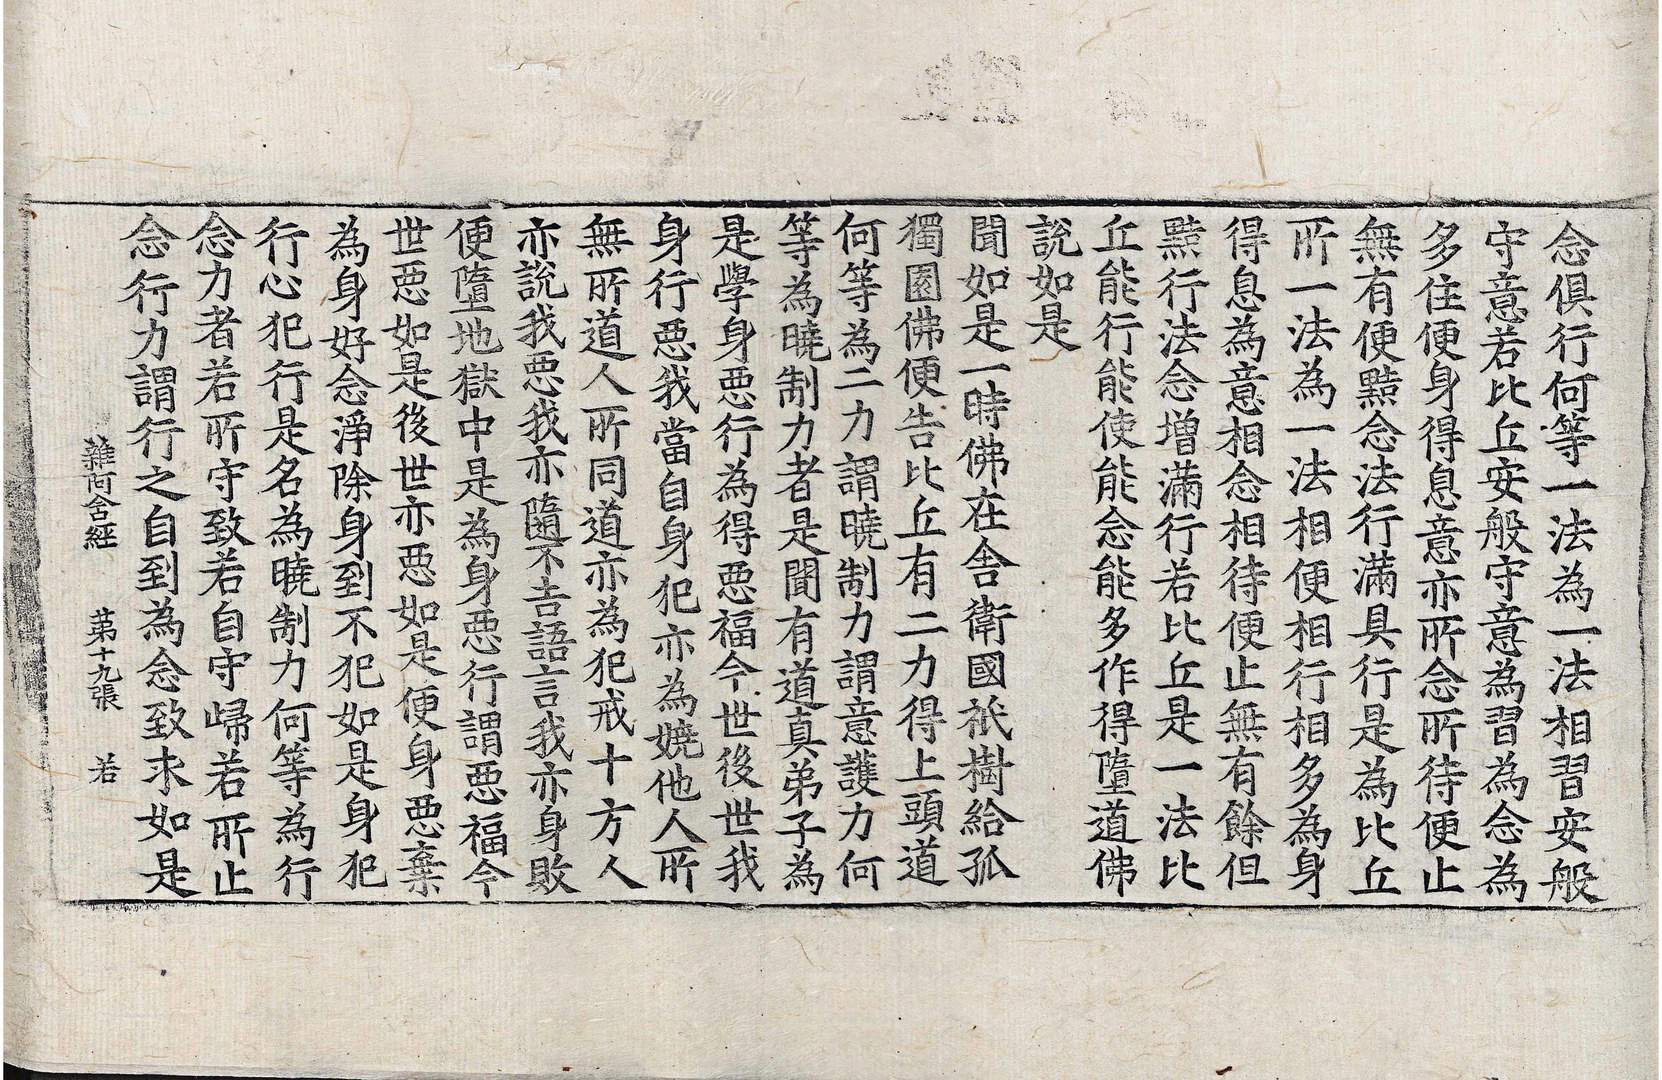 念俱行何等一法為一法相習安般
守意若比丘安般守意為習為念為
多住便身得息意亦所念所待便止
無有便黠念法行滿具行是為比丘
所一法為一法相便相行相多為身
得息為意相念相待便止無有餘但
黠行法念增滿行若比丘是一法比
丘能行能使能念能多作得墮道佛
說如是
聞如是一時佛在舍衛國祇樹給孤
獨園佛便告比丘有二力得上頭道
何等為二力謂曉制力謂意護力何
等為曉制力者是聞有道真弟子為
是學身惡行為得惡福今世後世我
身行惡我當自身犯亦為嬈他人所
無所道人所同道亦為犯戒十方人
亦說我惡我亦隨不吉語言我亦身敗
便墮地獄中是為身惡行謂惡福今
世惡如是後世亦惡如是便身惡棄
為身好念淨除身到不犯如是身犯
行心犯行是名為曉制力何等為行
念力者若所守致若自守歸若所止
念行力謂行之自到為念致求如是
雜阿含經 苐十九張 若